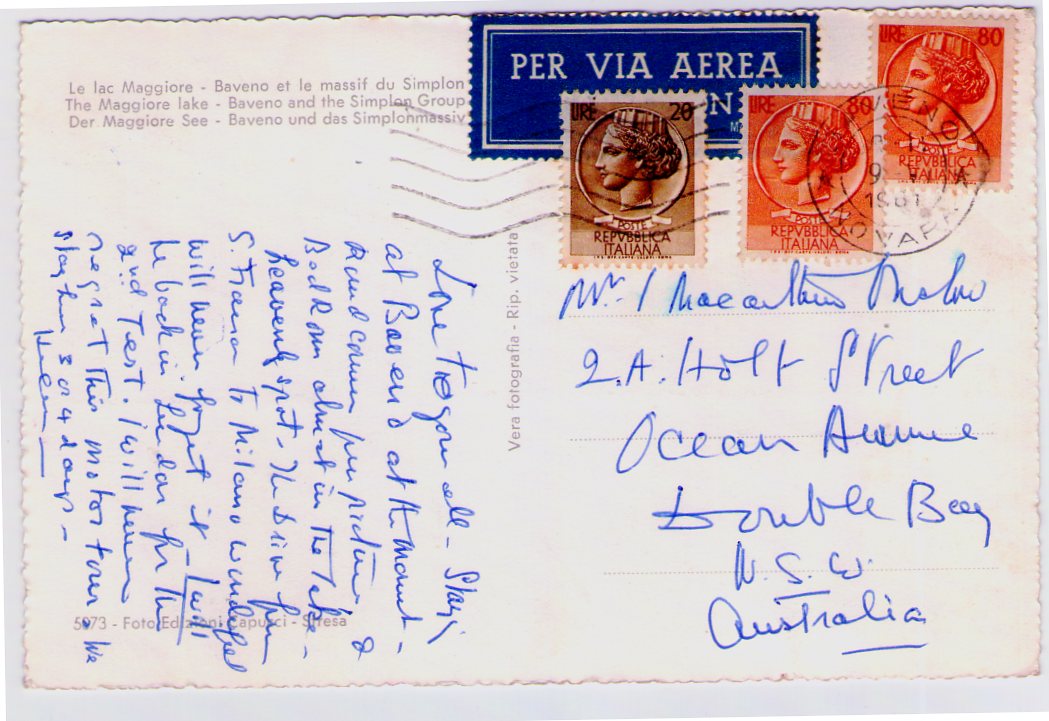 Le lac Maggiore - Baveno et le massif du Simplon
The Maggiore lake - Baveno and the Simplon Group
Der Maggiore See - Baveno und das Simplonmassiv
PER VIA AEREA
LIRE 20
POSTE
REPVBBLICA
ITALIANA
LIRE 80
POSTE
REPVBBLICA
ITALIANA
LIRE 80
POSTE
REPVBBLICA
ITALIANA
1961
NOVARA
Love to you all - Stay
at Baveno at the moment -
round corner from picture &
Bedroom almost in the lake -
heavenly spot. The drive from
S. To Milano wonderful
will never forget it I will
be back in London for the
2nd Test. I will never
regret this motor tour. We
stay here 3 or 4 days -
Vera fotografia - Rip. vietata
5073 - Foto Edizioni Capucci - Stresa
2.A. Holt Street
Ocean Avenue
Double Bay
N.S.W.
Australia